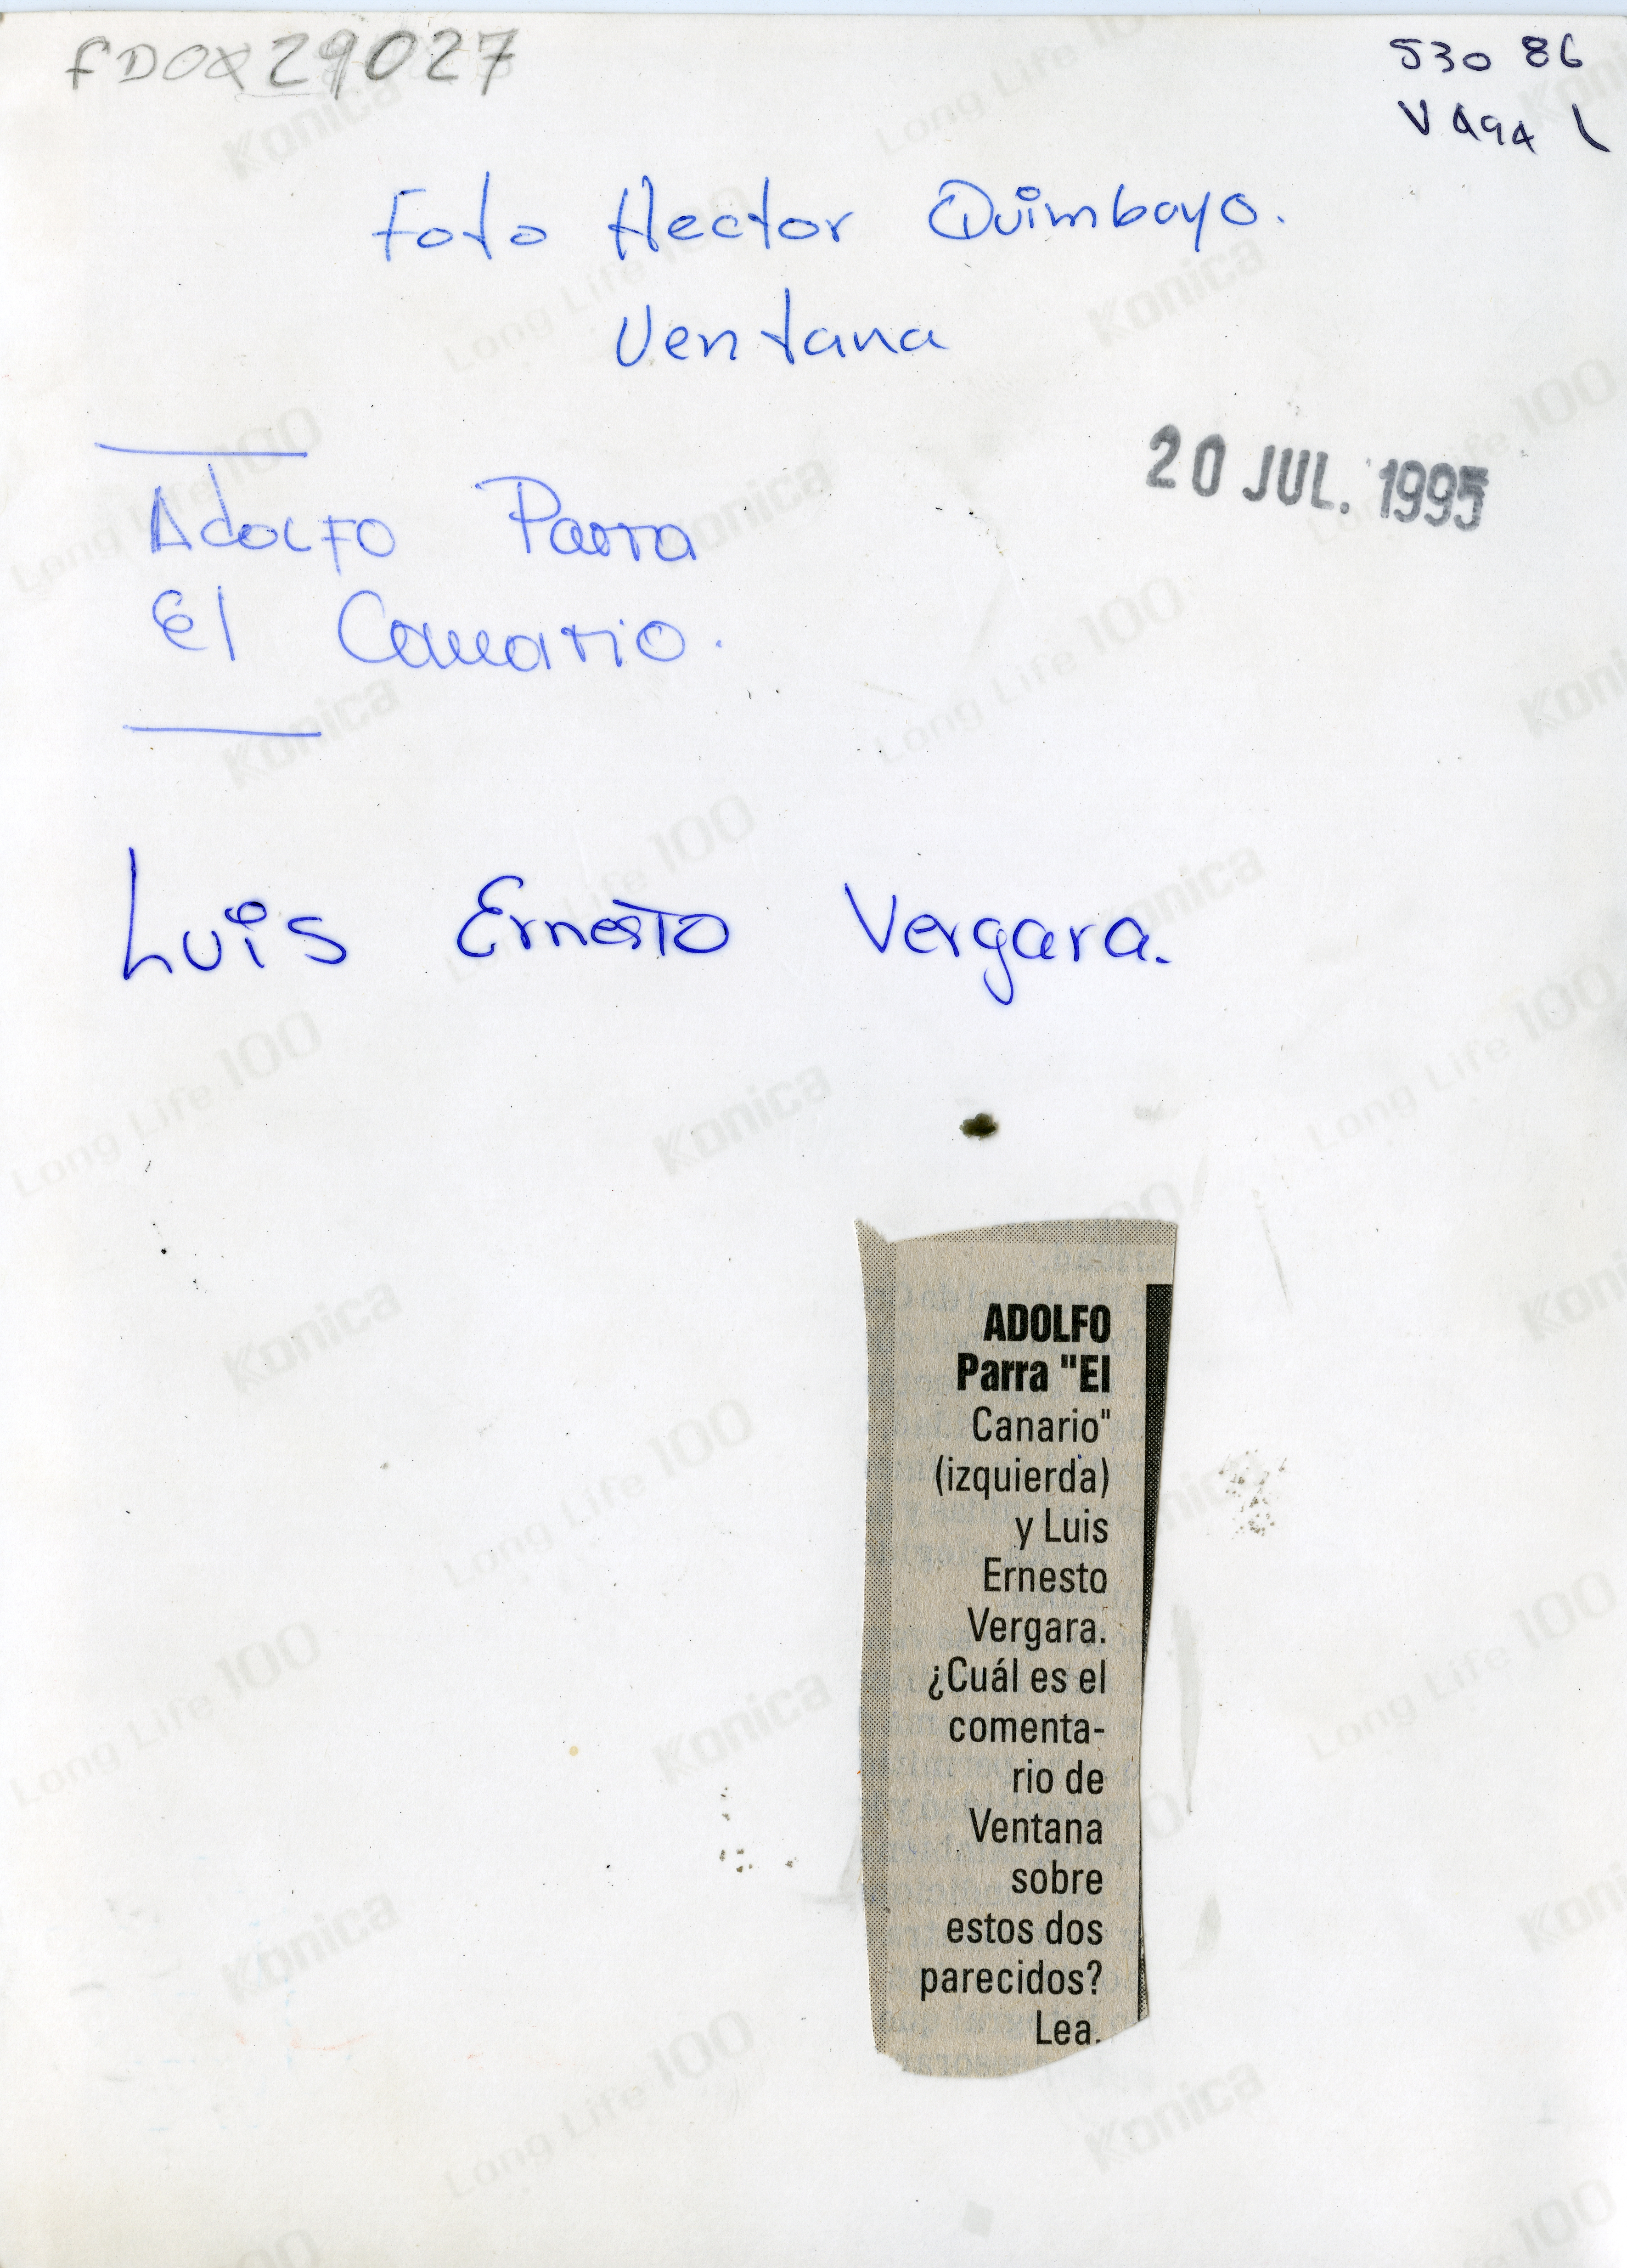 FDOX29027
530 86
V A94 L
Foto Hector Quimbayo.
Ventana
20 JUL. 1995
Adolfo Parra
El Canario.
Luis Ernesto Vergara.
ADOLFO
Parra "El
Canario"
(izquierda)
y Luis
Ernesto
Vergara.
¿Cuál es el
comenta-
rio de
Ventana
sobre
estos dos
parecidos?
Lea.
Konica
Long Life 100